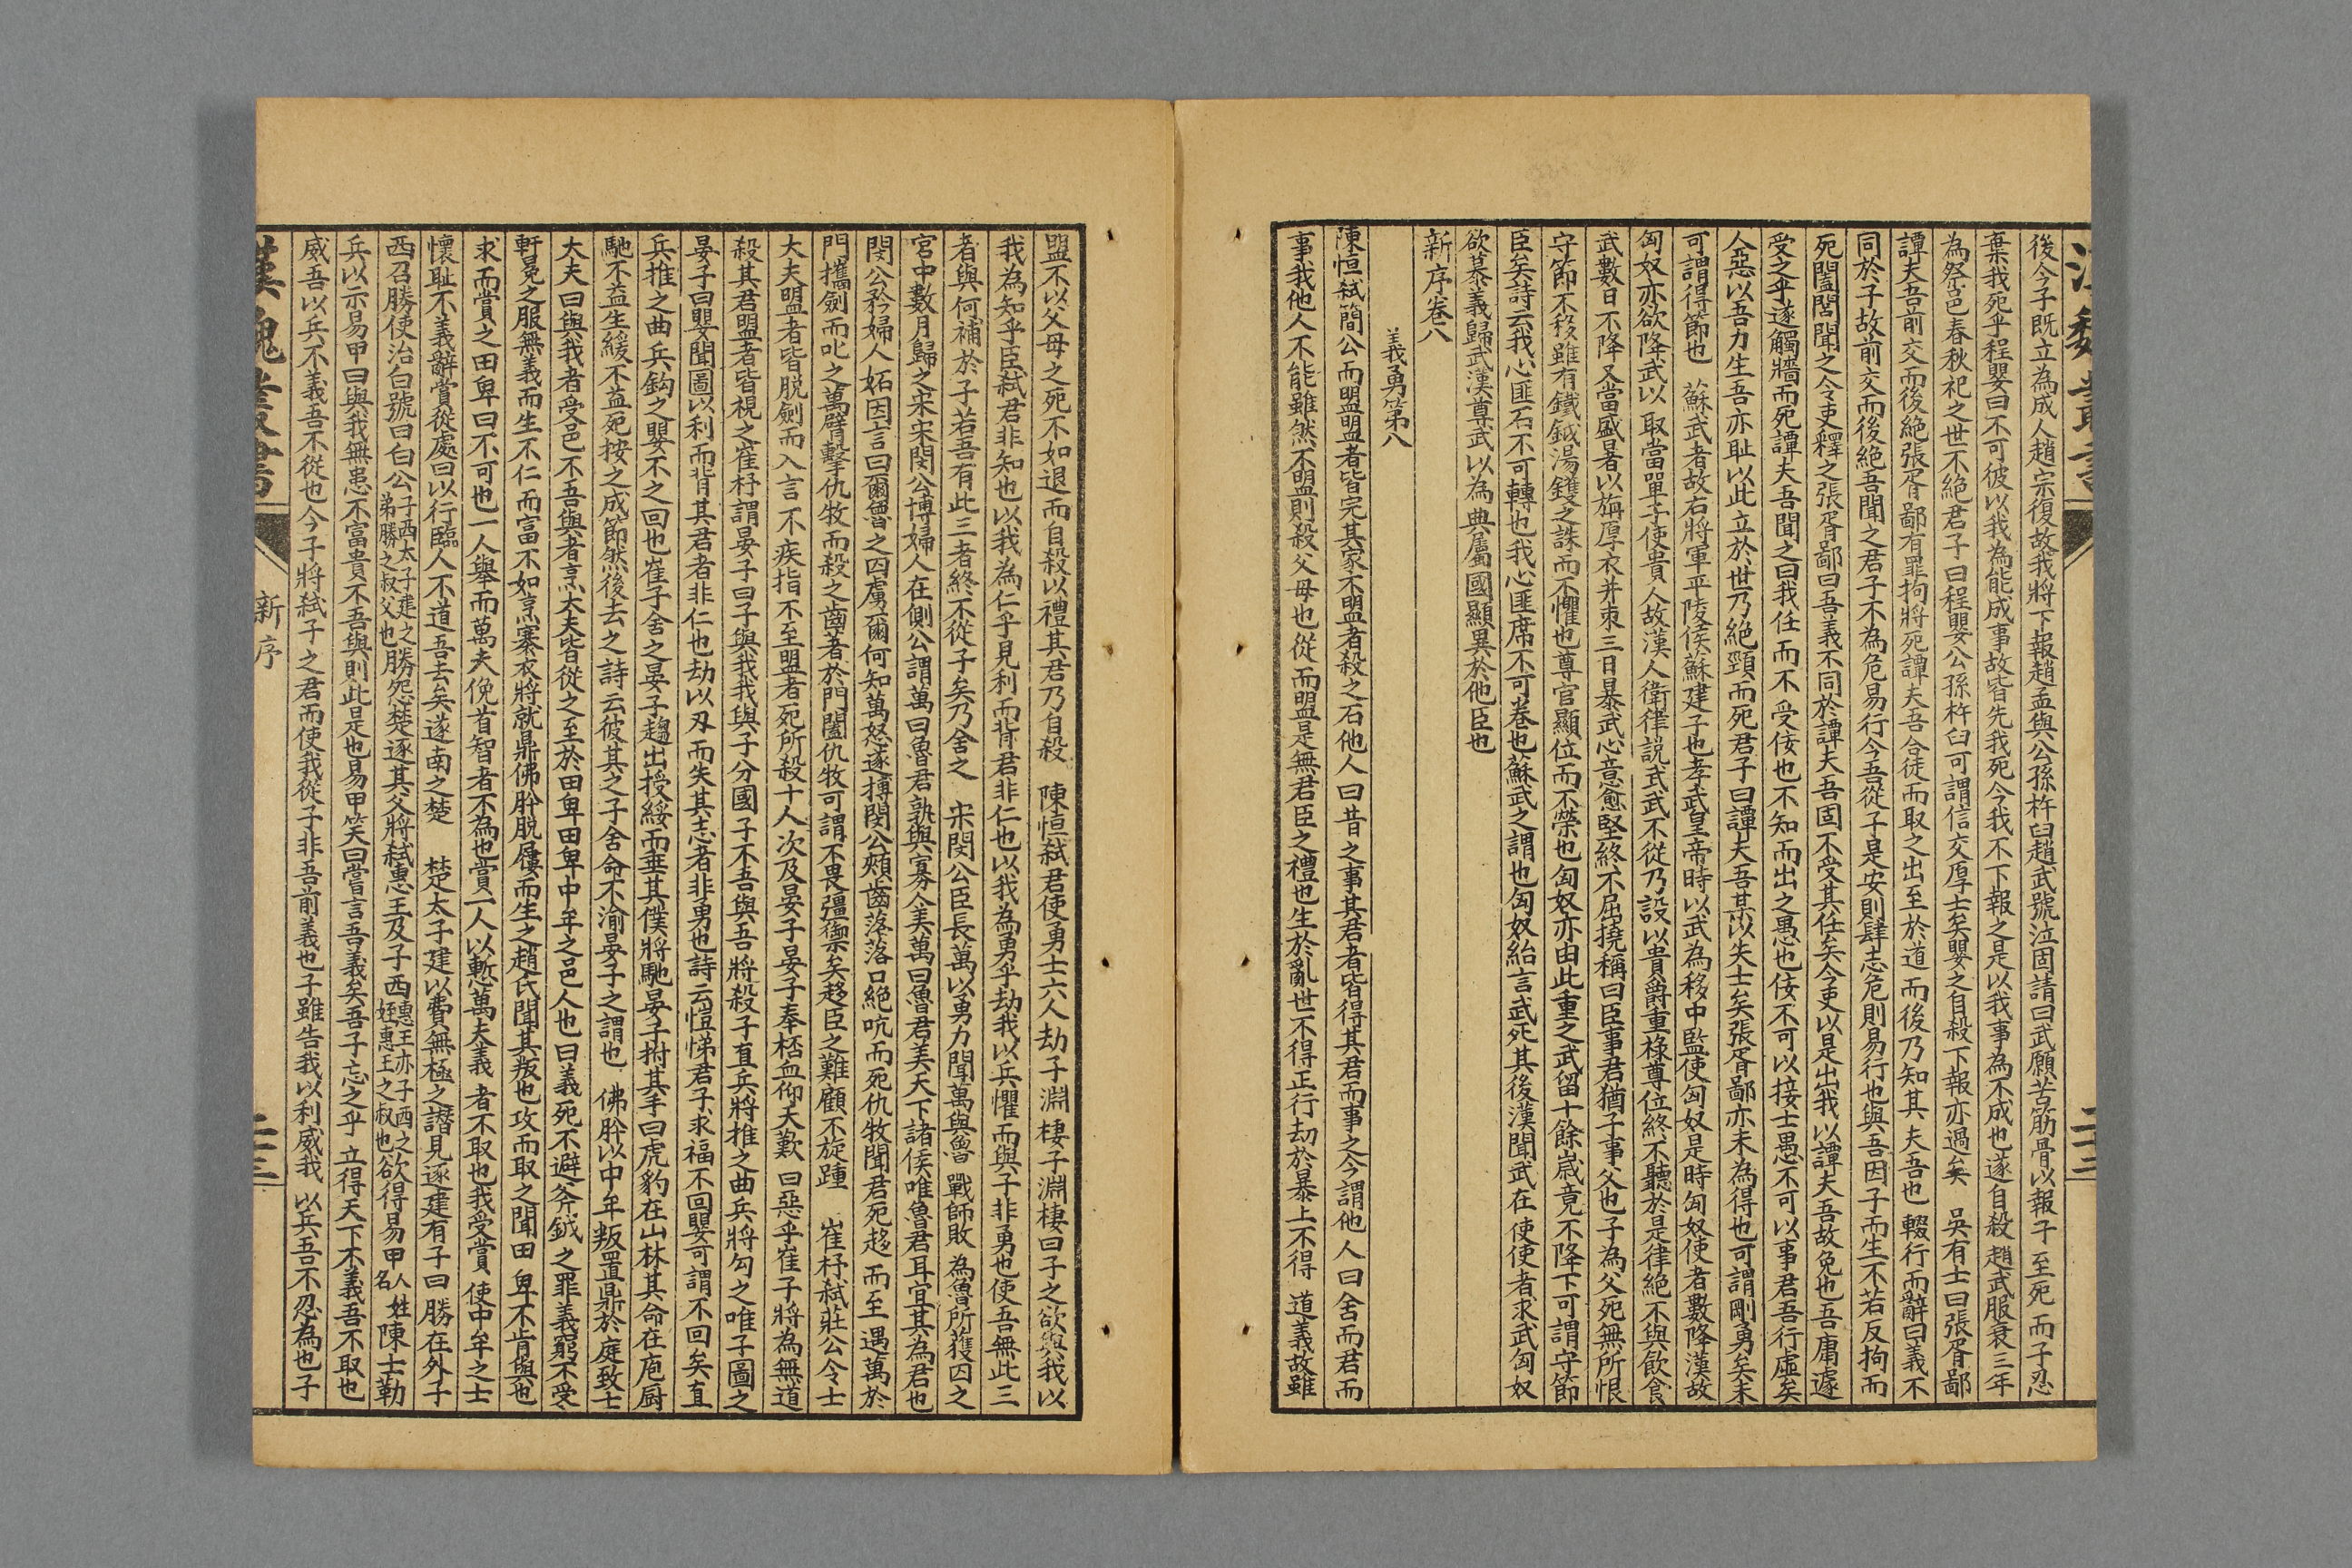 後今子既立為成人趙宗復故我將下報趙孟與公孫杵臼趙武號泣固請曰武願苦筋骨以報子至死而子忍
棄我死乎程嬰曰不可彼以我為能成事故皆先我死今我不下報之是以我事為不成也遂自殺趙武服衰三年
為祭邑春秋祀之世不絕君子曰程嬰公孫杵臼可謂信交厚士矣嬰之自殺下報亦過矣　吳有士曰張胥鄙
譚夫吾前交而後絕張胥鄙有罪拘將死譚夫吾合徒而取之出至於道而後乃知其夫吾也輟行而辭曰義不
同於子故前交而後絕吾聞之君子不為危易行今吾從子是安則肆志危則易行也與吾因子而生不若反拘而
死闔閭聞之令吏釋之張胥鄙曰吾義不同於譚夫吾固不受其任矣今吏以是出我以譚夫吾故免也吾庸遽
受之乎遂觸牆而死譚夫吾聞之曰我任而不受佞也不知而出之愚也佞不可以接士愚不可以事君吾行虛矣
人惡以吾力生吾亦耻以此立於世乃絕頸而死君子曰譚夫吾其以失士矣張胥鄙亦未為得也可謂剛勇矣未
可謂得節也　蘇武者故右將軍平陵侯蘇建子也孝武皇帝時以武為移中監使匈奴是時匈奴使者數降漢故
匈奴亦欲降武以取當單于使貴人故漢人衛律説武武不從乃設以貴爵重祿尊位終不聽於是律絕不與飲食
武數日不降又當盛暑以旃厚衣并束三日暴武心意愈堅終不屈撓稱曰臣事君猶子事父也子為父死無所恨
守節不移雖有鐵鉞湯鑊之誅而不懼也尊官顯位而不榮也匈奴亦由此重之武留十餘嵗竟不降下可謂守節
臣矣詩云我心匪石不可轉也我心匪席不可卷也蘇武之謂也匈奴紿言武死其後漢聞武在使使者求武匈奴
欲慕義歸武漢尊武以為典屬國顯異於他臣也
新序卷八
義勇第八
陳恒弒簡公而盟盟者皆完其家不盟者殺之石他人曰昔之事其君者皆得其君而事之今謂他人曰舍而君而
事我他人不能雖然不盟則殺父母也從而盟是無君臣之禮也生於亂世不得正行刧於暴上不得道義故雖
盟不以父母之死不如退而自殺以禮其君乃自殺　陳恒弒君使勇士六人劫子淵棲子淵棲曰子之欲與我以
我為知乎臣弒君非知也以我為仁乎見利而背君非仁也以我為勇乎劫我以兵懼而與子非勇也使吾無此三
者與何補於子若吾有此三者終不從子矣乃舍之　宋閔公臣長萬以勇力聞萬與魯戰師敗為魯所獲囚之
宮中數月歸之宋宋閔公博婦人在側公謂萬曰魯君孰與寡人美萬曰魯君美天下諸侯唯魯君耳宜其為君也
閔公矜婦人妬因言曰爾魯之囚虜爾何知萬怒遂搏閔公頰齒落落口絕吭而死仇牧聞君死趍而至遇萬於
門攜劍而叱之萬臂擊仇牧而殺之齒著於門闔仇牧可謂不畏彊禦矣趍臣之難顧不旋踵　崔杼弒莊公令士
大夫盟者皆脱劍而入言不疾指不至盟者死所殺十人次及晏子晏子奉桮血仰天歎曰惡乎崔子將為無道
殺其君盟者皆視之崔杼謂晏子曰子與我我與子分國子不吾與吾將殺子直兵將推之曲兵將勾之唯子圖之
晏子曰嬰聞圖以利而背其君者非仁也劫以刃而失其志者非勇也詩云愷悌君子求福不回嬰可謂不回矣直
兵推之曲兵鈎之嬰不之回也崔子舍之晏子趨出授綏而乗其僕將馳晏子拊其手曰虎豹在山林其命在庖厨
馳不益生緩不益死按之成節然後去之詩云彼其之子舍命不渝晏子之謂也　佛肸以中牟叛置鼎於庭致士
大夫曰與我者受邑不吾與者烹大夫皆從之至於田卑田卑中牟之邑人也曰義死不避斧鉞之罪義窮不受
軒冕之服無義而生不仁而富不如烹褰衣將就鼎佛肸脱屨而生之趙氏聞其叛也攻而取之聞田卑不肯與也
求而賞之田卑曰不可也一人舉而萬夫俛首智者不為也賞一人以慙萬夫義者不取也我受賞使中牟之士
懷耻不義辭賞從處曰以行臨人不道吾去矣遂南之楚　楚太子建以費無極之譖見逐建有子曰勝在外子
西召勝使治白號曰白公子西太子建之弟勝之叔父也勝怨楚逐其父將弒惠王及子西惠王亦子西之姪惠王之叔也欲得易甲人名姓陳士勒
兵以示易甲曰與我無患不富貴不吾與則此是也易甲笑曰嘗言吾義矣吾子忘之乎立得天下不義吾不取也
威吾以兵不義吾不從也今子將弒子之君而使我從子非吾前義也子雖告我以利威我以兵吾不忍為也子
漢魏叢書
新序
二十三